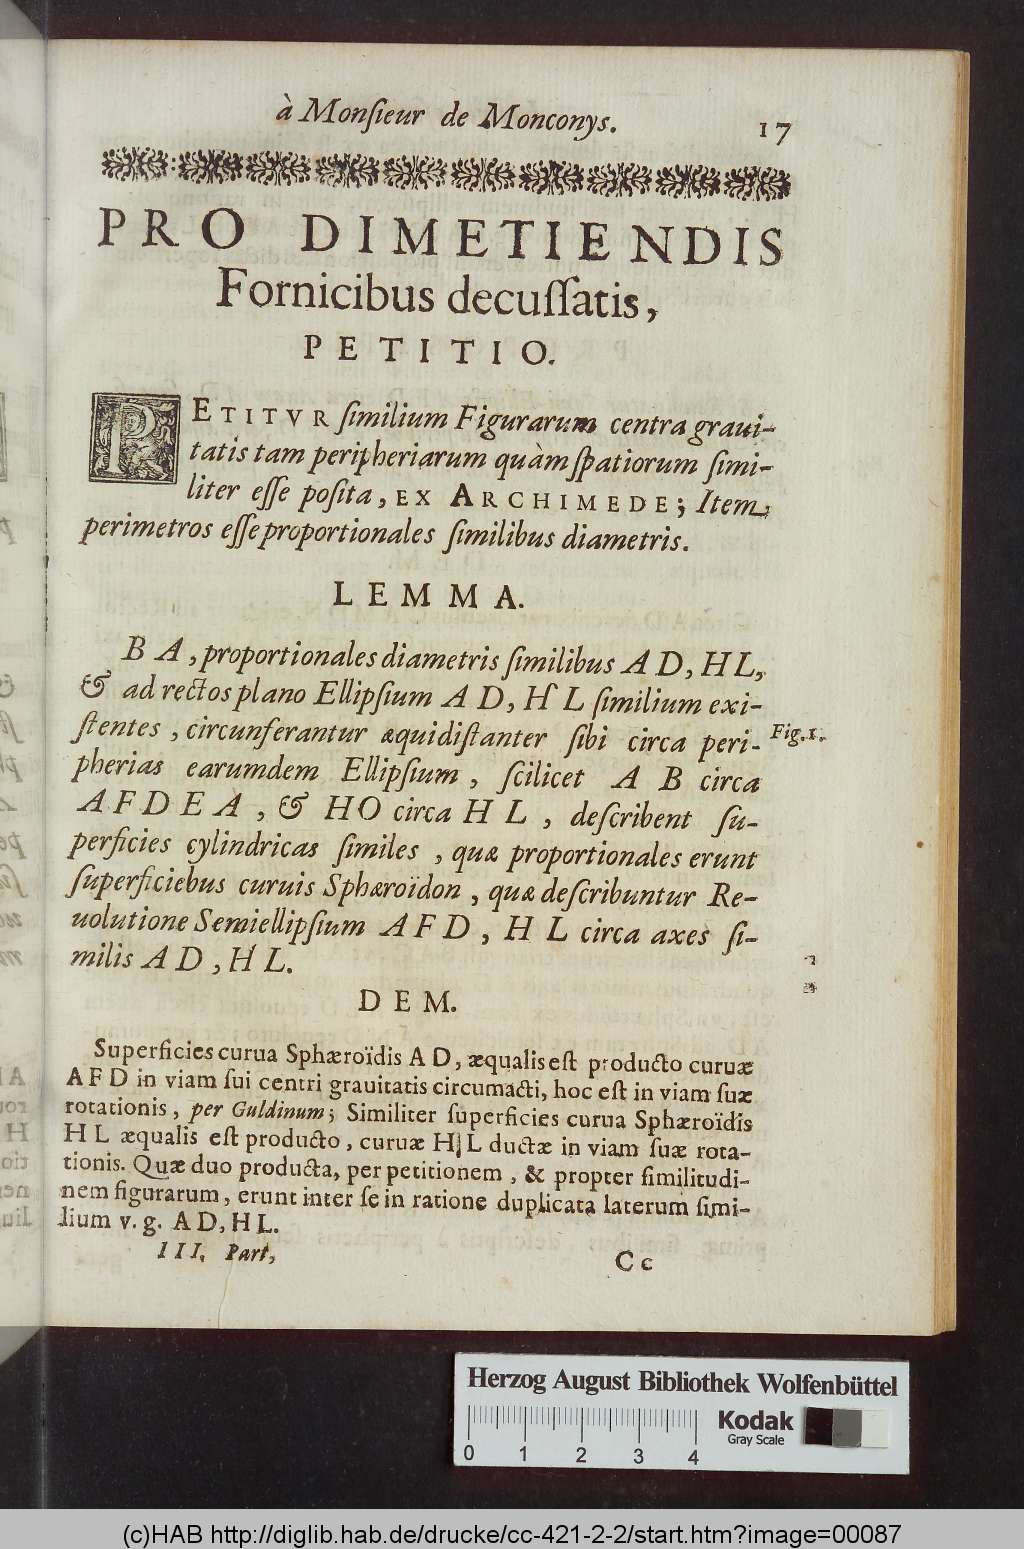 à Monſieur de Monconys. 17
PRO DIMETIENDIS
Fornicibus decuſſatis,
PETITIO.
PETITVR ſimilium Figurarum centra graui-
tatis tam peripheriarum quàm ſpatiorum ſimi-
liter eſſe poſita, EX ARCHIMEDE; Item,
perimetros eſſe proportionales ſimilibus diametris.
LEMMA.
B A, proportionales diametris ſimilibus A D, H L,
& ad rectos plano Ellipſium A D, H L ſimilium exi-
ſtentes, circunferantur æquidiſtanter ſibi circa peri- Fig. 1.
pherias earumdem Ellipſium, ſcilicet A B circa
A F D E A, & H O circa H L, deſcribent ſu-
perficies cylindricas ſimiles, quæ proportionales erunt
ſuperficiebus curuis Sphæroïdon, quæ deſcribuntur Re-
uolutione Semiellipſium A F D, H L circa axes ſi-
milis A D, H L.
DEM.
Superficies curua Sphæroïdis A D, æqualis eſt producto curuæ
A F D in viam ſui centri grauitatis circumacti, hoc eſt in viam ſuæ
rotationis, per Guldinum; Similiter ſuperficies curua Sphæroïdis
H L æqualis eſt producto, curuæ H L ductæ in viam ſuæ rota-
tionis. Quæ duo producta, per petitionem, & propter ſimilitudi-
nem figurarum, erunt inter ſe in ratione duplicata laterum ſimi-
lium v. g. A D, H L.
III. Part, Cc
Herzog August Bibliothek Wolfenbüttel
0 1 2 3 4
Kodak
Gray Scale
(c)HAB http://diglib.hab.de/drucke/cc-421-2-2/start.htm?image=00087